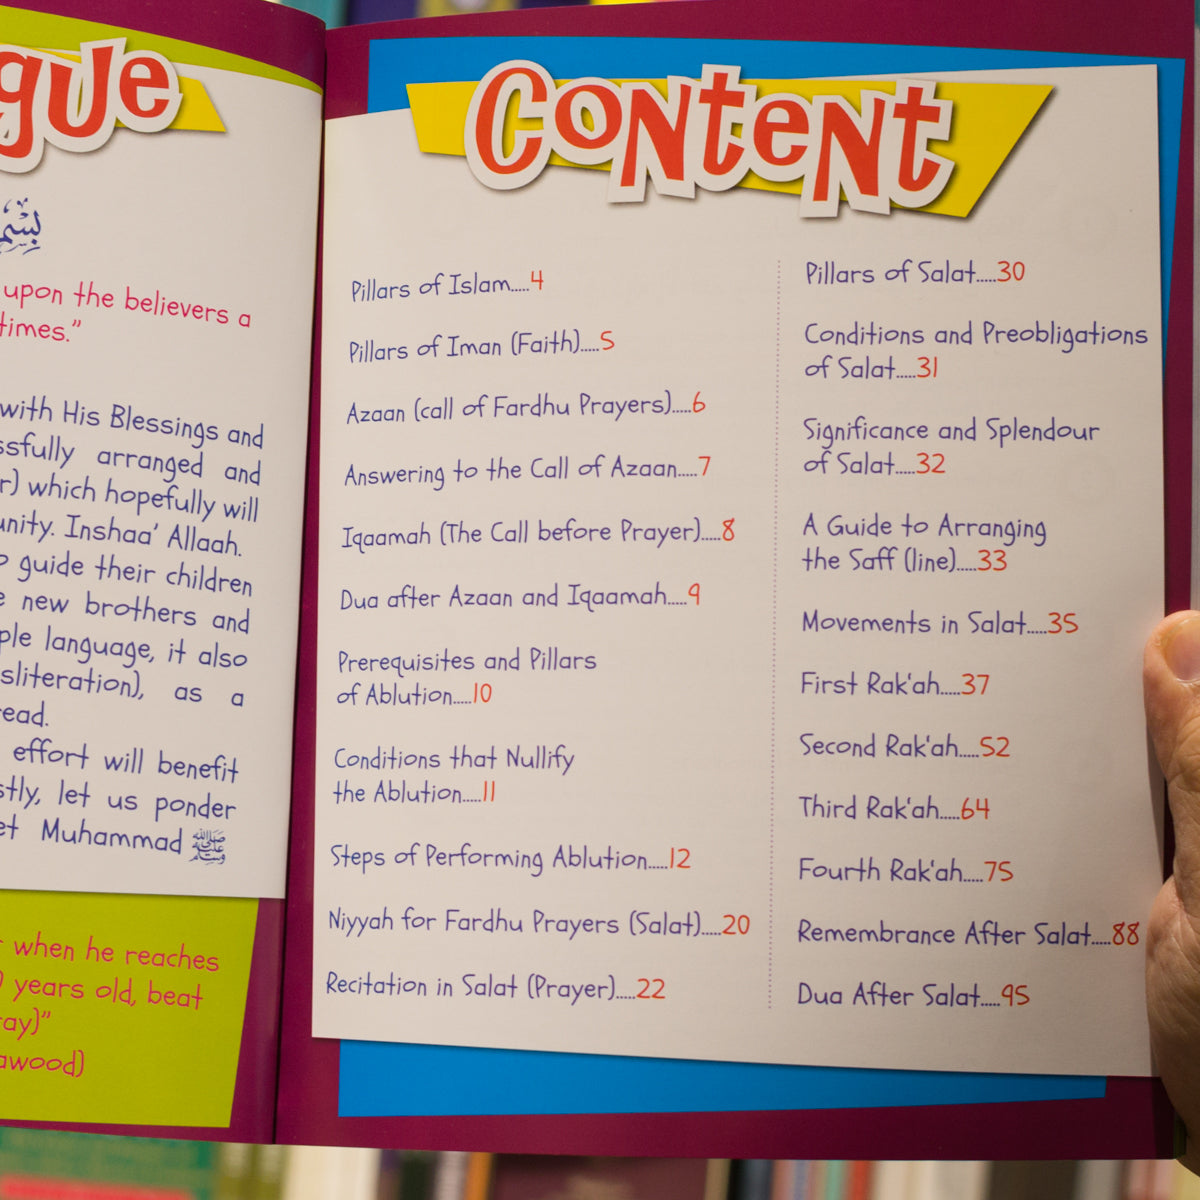 gue
بِسْمِ
upon the believers a
times."
with His Blessings and
ssfully arranged and
r) which hopefully will
unity. Inshaa' Allaah.
guide their children
new brothers and
ple language, it also
sliteration), as a
ead.
effort will benefit
stly, let us ponder
et Muhammad ﷺ
when he reaches
years old, beat
ray)"
awood)
Content
Pillars of Islam.....4
Pillars of Iman (Faith).....5
Azaan (call of Fardhu Prayers).....6
Answering to the Call of Azaan.....7
Iqaamah (The Call before Prayer).....8
Dua after Azaan and Iqaamah.....9
Prerequisites and Pillars
of Ablution.....10
Conditions that Nullify
the Ablution.....11
Steps of Performing Ablution.....12
Niyyah for Fardhu Prayers (Salat).....20
Recitation in Salat (Prayer).....22
Pillars of Salat.....30
Conditions and Preobligations
of Salat.....31
Significance and Splendour
of Salat.....32
A Guide to Arranging
the Saff (line).....33
Movements in Salat.....35
First Rak'ah.....37
Second Rak'ah.....52
Third Rak'ah.....64
Fourth Rak'ah.....75
Remembrance After Salat.....88
Dua After Salat.....95